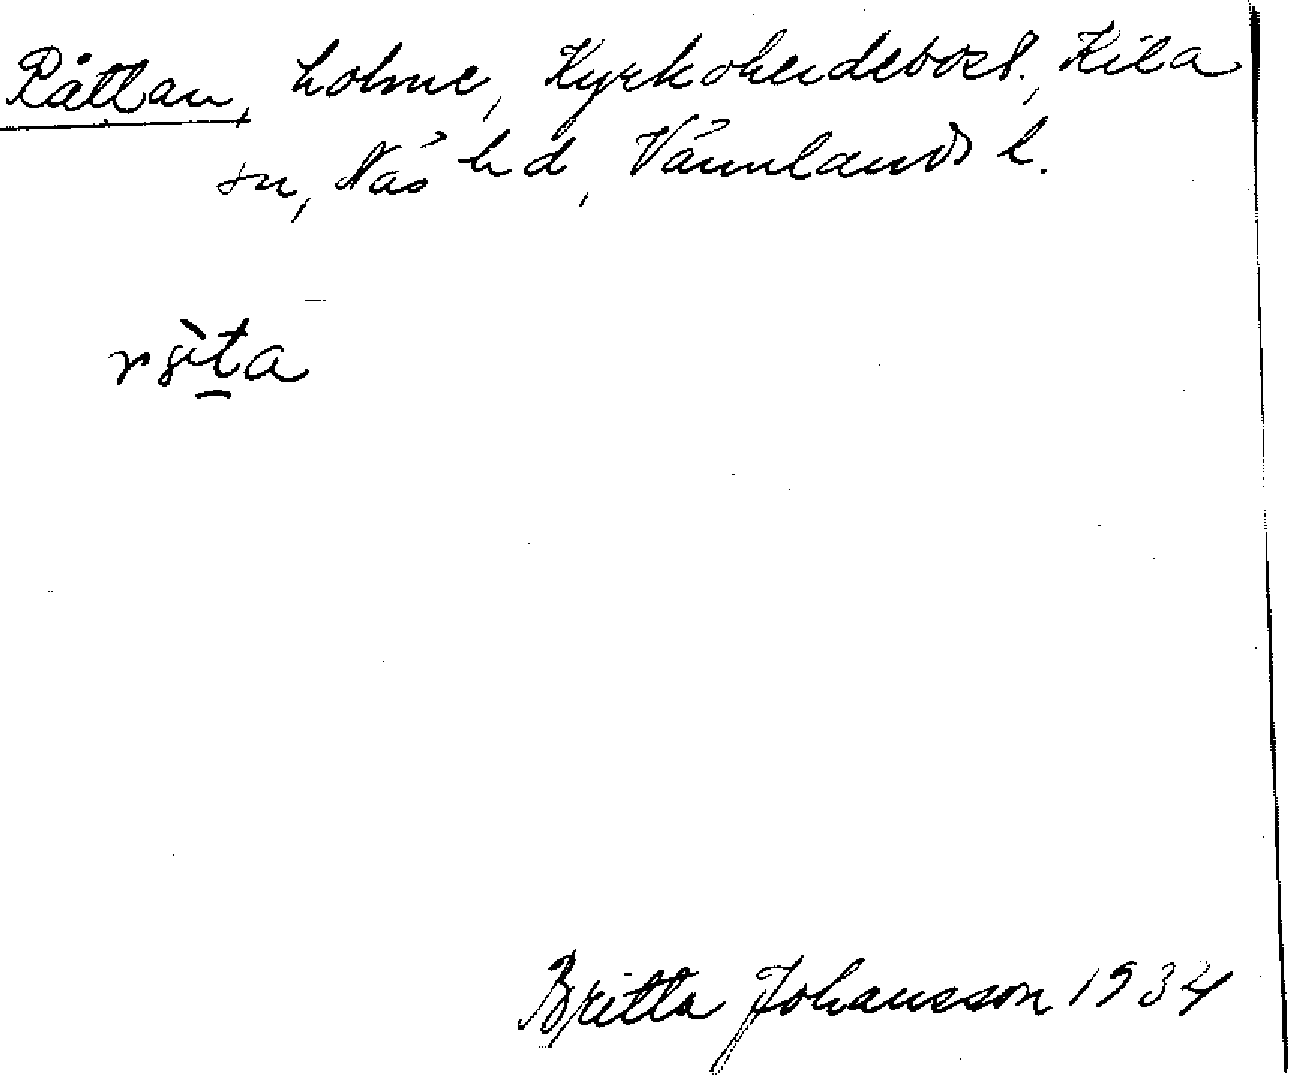 Råttan, holme, Kyrkoherdebost., Kila
sn, Näs hd, Värmlands l.
Britta Johansson 1934